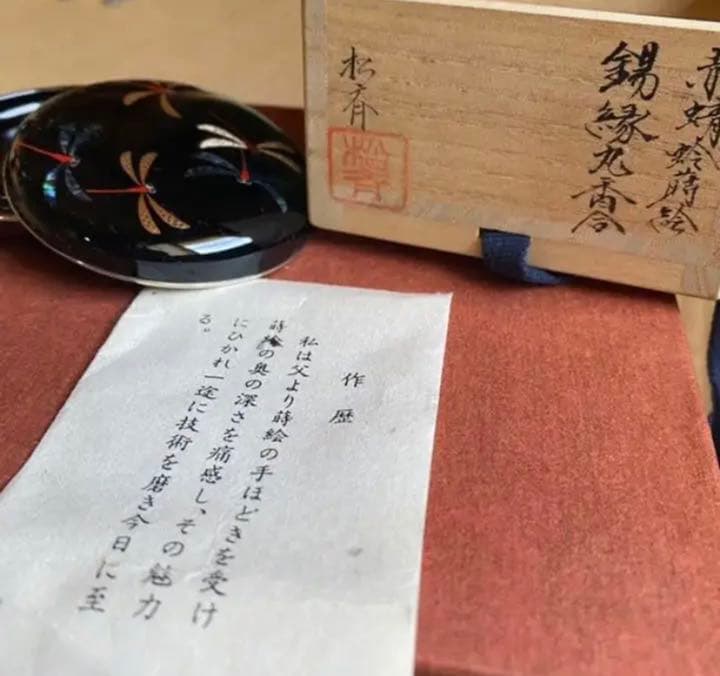 赤蜻蛉蒔絵
錫縁丸香合
松斉
作歴
私は父より蒔絵の手ほどきを受け
蒔絵の奥の深さを痛感し、その魅力
にひかれ一途に技術を磨き今日に至
る。